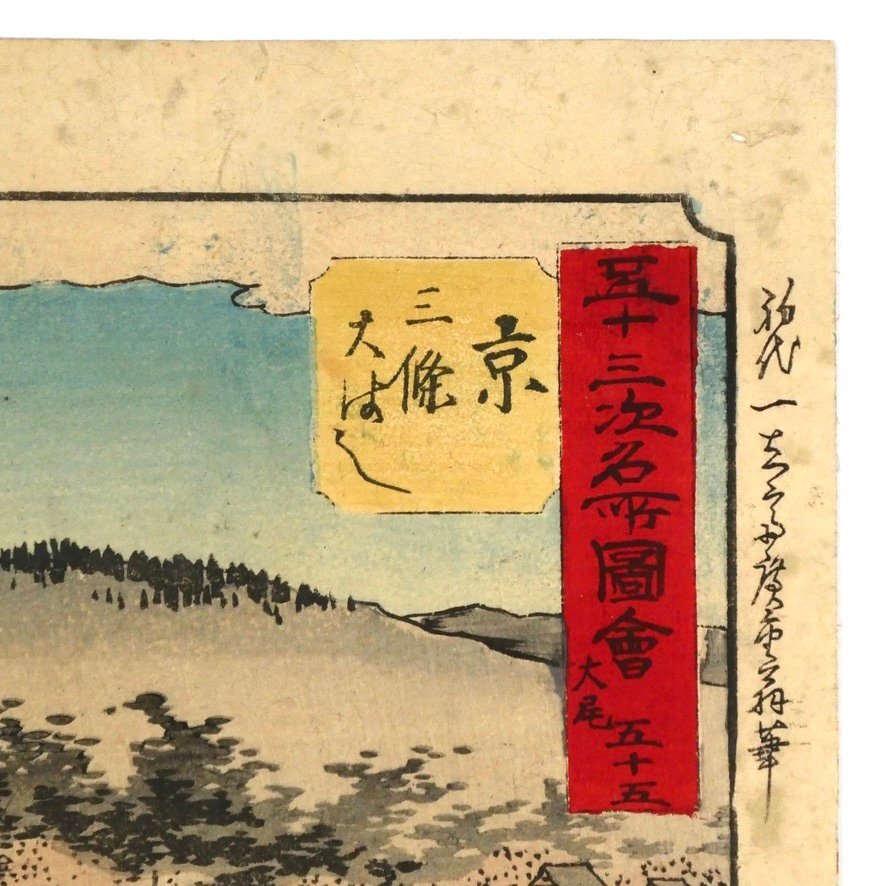 五十三次名所圖會
大尾
五十五
京
三條
大はし
初代一立斎廣重